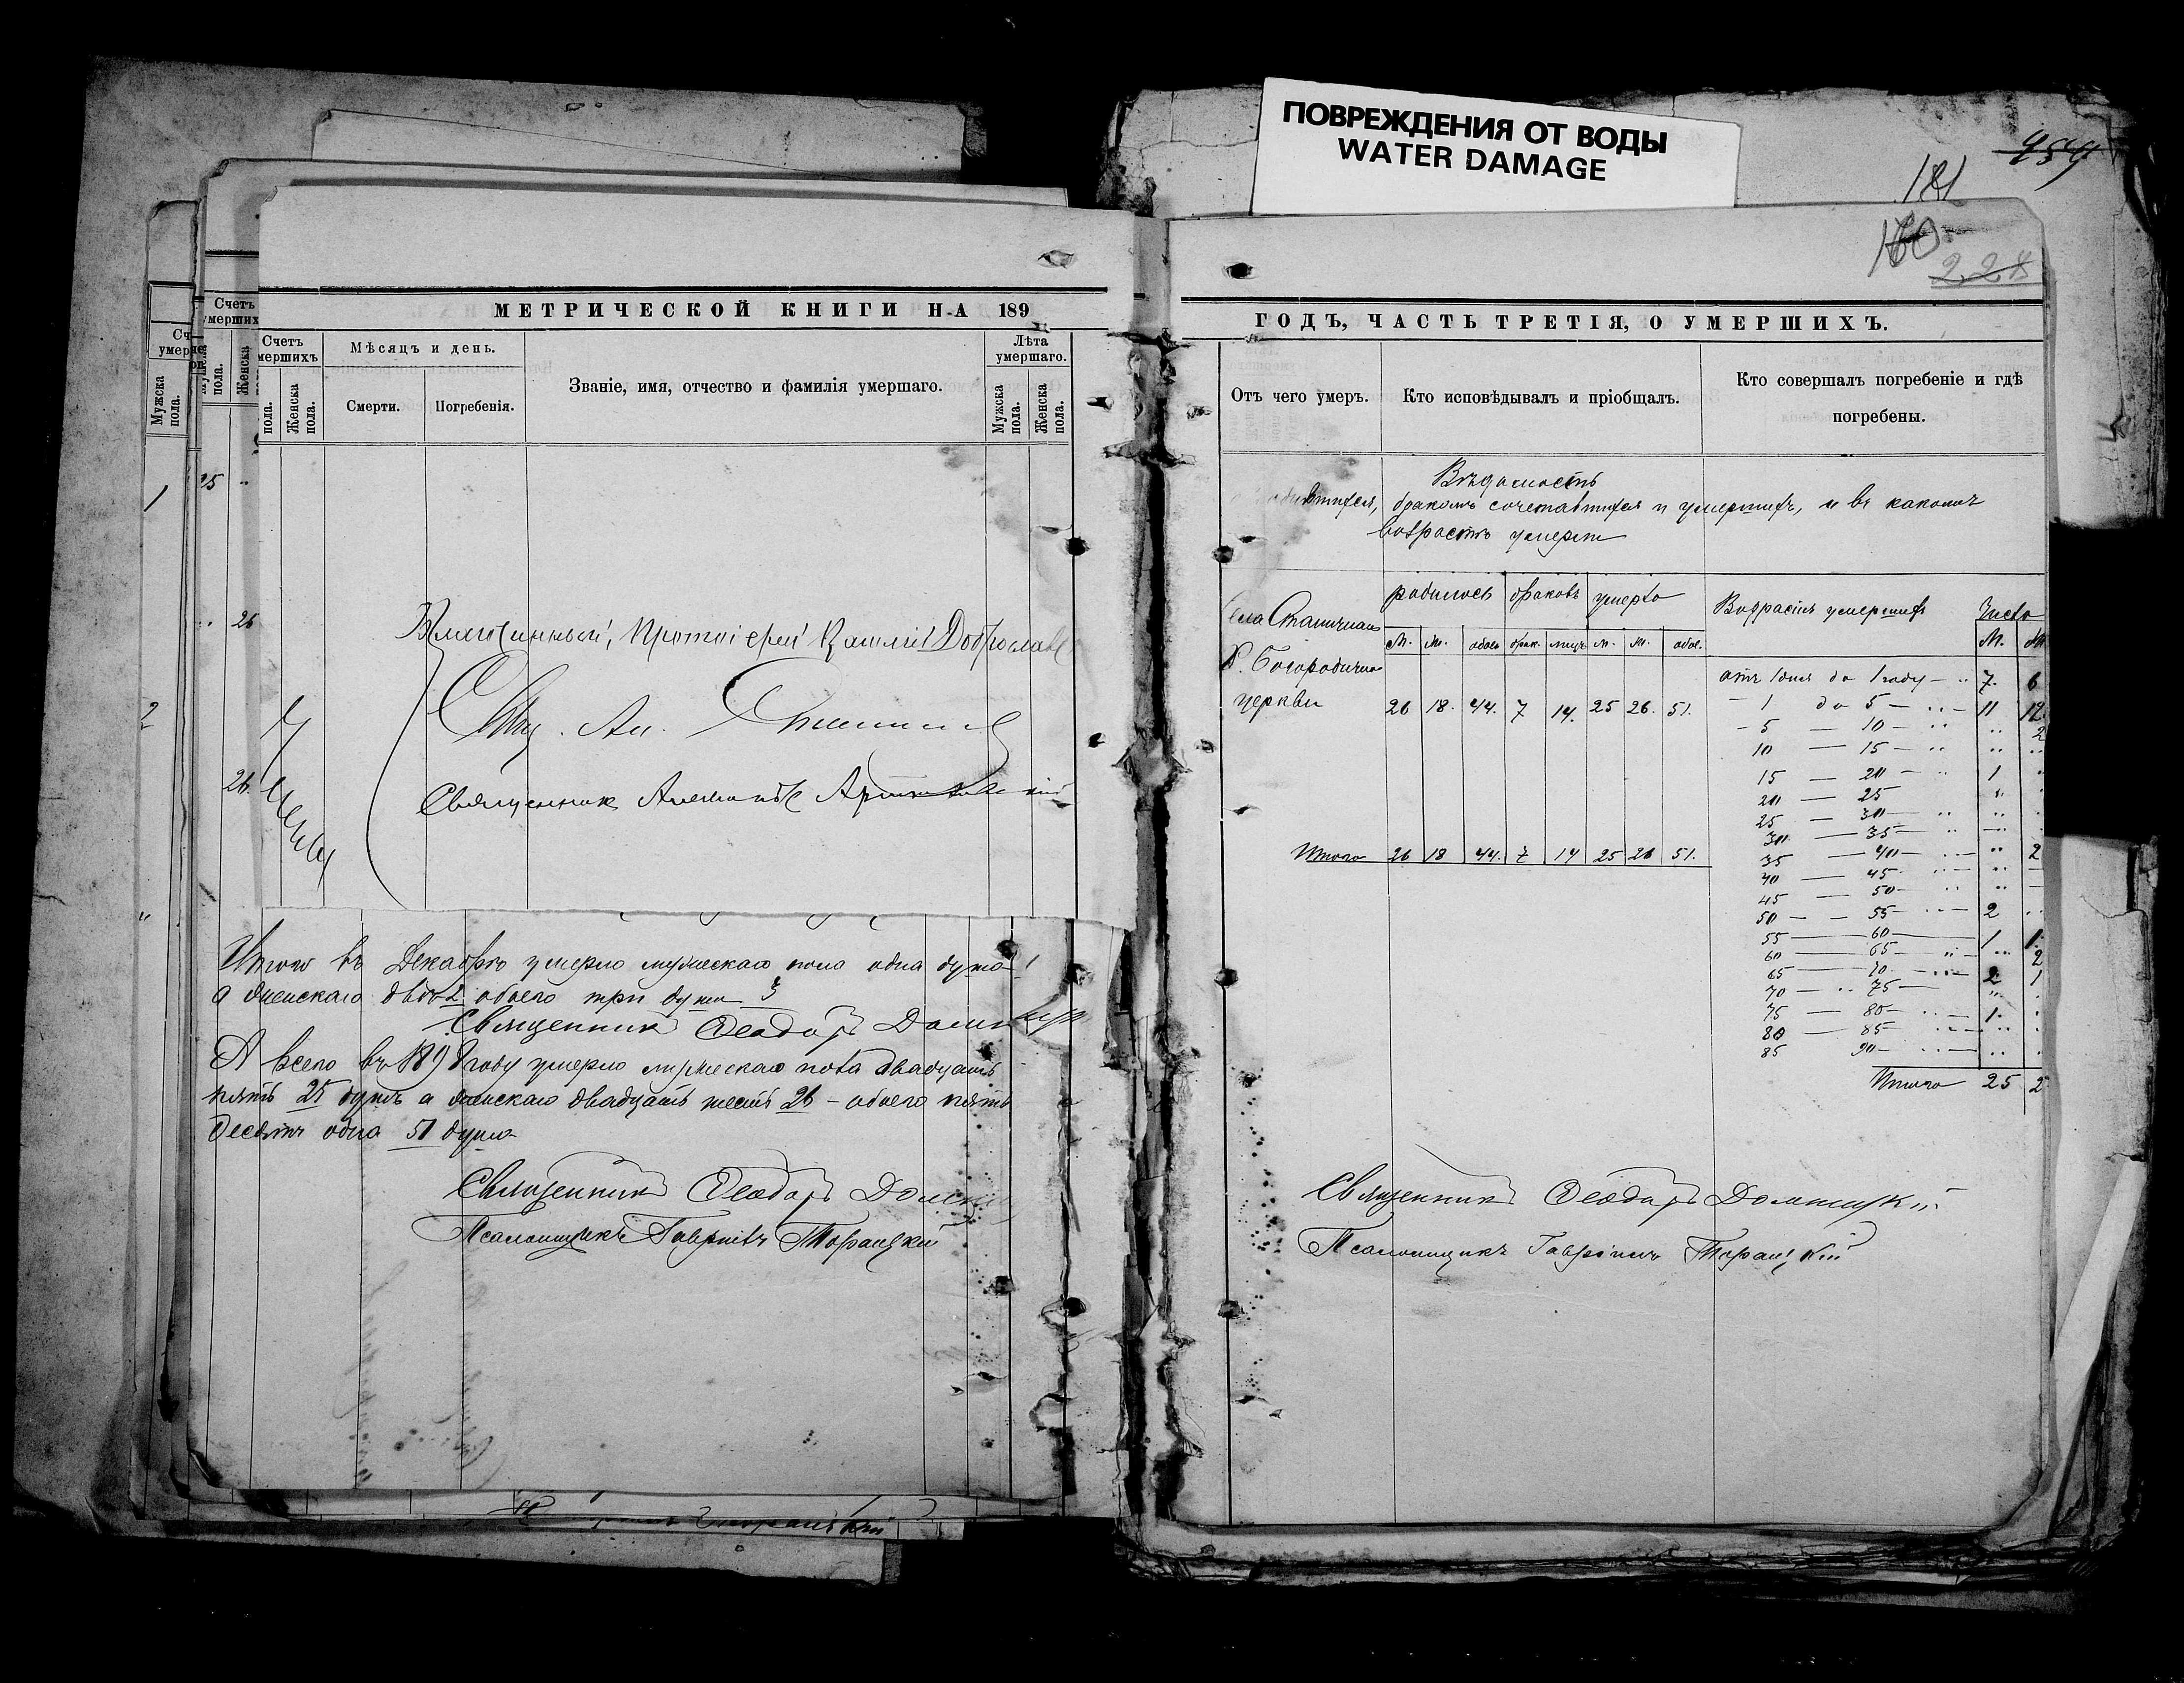 ПОВРЕЖДЕНИЯ ОТ ВОДЫ
WATER DAMAGE
181
160
228
МЕТРИЧЕСКОЙ КНИГИ НА 189
Счетъ умершихъ
Мѣсяцъ и день.
Званіе, имя, отчество и фамилія умершаго.
Лѣта умершаго.
Мужска пола.
Женска пола.
Смерти.
Погребенія.
Мужска пола.
Женска пола.
1
25
26
2
26
Протоіерей
Свящ. Ал.
Священникъ
Итого въ Декабрѣ умерло мужескаго пола одна душа 1
а женскаго двѣ 2 обоего три души 3
Священникъ Ѳеодоръ
А всего въ 1898 году умерло мужескаго пола двадцать
пять 25 душъ а женскаго двадцать шесть 26 – обоего пять
десятъ одна 51 душа
Священникъ Ѳеодоръ
Псаломщикъ Гавріилъ
ГОДЪ, ЧАСТЬ ТРЕТІЯ, О УМЕРШИХЪ.
Отъ чего умеръ.
Кто исповѣдывалъ и пріобщалъ.
Кто совершалъ погребеніе и гдѣ погребены.
Вѣдомость
бракомъ сочетавшихся и умершихъ, и въ какомъ
возрастѣ умерли
родилось браковъ умерло
Возрастъ умершихъ
Число
М. Ж. обоего брак. лицъ М. Ж. обое.
М. Ж.
Р. Богородична
церкви
26 18. 44. 7 14. 25 26. 51.
отъ 1 дня до 1 году 7. 6
1 до 5 11 12
5 — 10 2
10 — 15
15 — 20 1
20 — 25
25 — 30
30 — 35
35 — 40 2
40 — 45
45 — 50
50 — 55 2
55 — 60 1 1
60 — 65 2
65 — 70 2 1
70 — 75
75 — 80 1
80 — 85
85 90
Итого 26 18 44. 7 14 25 26 51.
Итого 25 2
Священникъ Ѳеодоръ
Псаломщикъ Гавріилъ